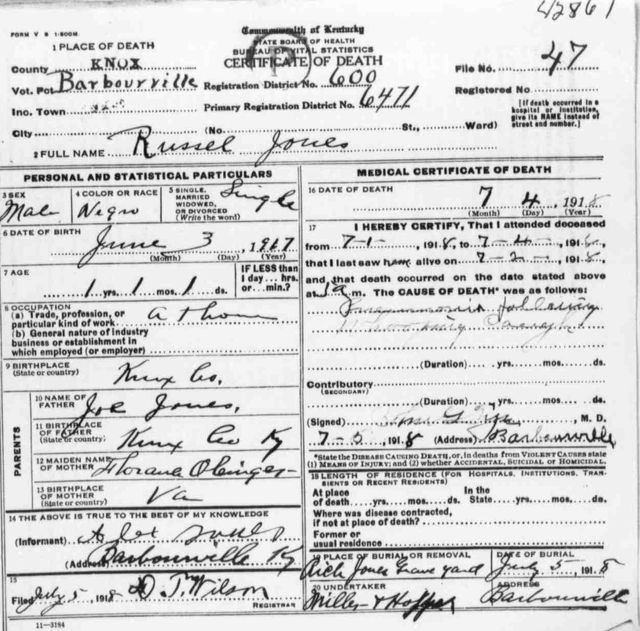 42861
FORM V S 1-500M.
Commonwealth of Kentucky
STATE BOARD OF HEALTH
BUREAU OF VITAL STATISTICS
CERTIFICATE OF DEATH
1 PLACE OF DEATH
County KNOX
Vot. Pct Barbourville
Inc. Town
City (No. St., Ward)
Registration District No. 600
Primary Registration District No. 6471
File No. 47
Registered No.
[If death occurred in a hospital or institution, give its NAME instead of street and number.]
2 FULL NAME Russel Jones
PERSONAL AND STATISTICAL PARTICULARS
3 SEX Male
4 COLOR OR RACE Negro
5 SINGLE, MARRIED WIDOWED, OR DIVORCED (Write the word) Single
6 DATE OF BIRTH June 3, 1917
(Month) (Day) (Year)
7 AGE 1 yrs. 1 mos. 1 ds.
IF LESS than 1 day....hrs. or......min.?
8 OCCUPATION
(a) Trade, profession, or particular kind of work at home
(b) General nature of industry
business or establishment in
which employed (or employer)
9 BIRTHPLACE
(State or country) Knox Co.
PARENTS
10 NAME OF FATHER Joe Jones,
11 BIRTHPLACE OF FATHER (State or country) Knox Co Ky
12 MAIDEN NAME OF MOTHER
13 BIRTHPLACE OF MOTHER (State or country) Va
14 THE ABOVE IS TRUE TO THE BEST OF MY KNOWLEDGE
(Informant) Jones
(Address) Barbourville Ky
15
Filed July 5 1918 Wilson
REGISTRAR
11-3184
MEDICAL CERTIFICATE OF DEATH
16 DATE OF DEATH 7 4, 1918
(Month) (Day) (Year)
17 I HEREBY CERTIFY, That I attended deceased
from 7-1-, 1918, to 7-4-, 1918,
that I last saw him alive on 7-2-, 1918,
and that death occurred on the date stated above
at 1 a m. The CAUSE OF DEATH* was as follows:
following
(Duration) yrs. mos. ds.
Contributory
(SECONDARY)
(Duration) yrs. mos. ds.
(Signed) M. D.
7-5, 1918 (Address) Barbourville
*State the DISEASE CAUSING DEATH, or, in deaths from VIOLENT CAUSES state
(1) MEANS OF INJURY; and (2) whether ACCIDENTAL, SUICIDAL OR HOMICIDAL.
18 LENGTH OF RESIDENCE (FOR HOSPITALS, INSTITUTIONS, TRANSIENTS OR RECENT RESIDENTS)
At place of death yrs. mos. ds. In the State yrs. mos. ds.
Where was disease contracted,
if not at place of death?
Former or
usual residence
19 PLACE OF BURIAL OR REMOVAL Jones Grave yard
DATE OF BURIAL July 5, 1918
20 UNDERTAKER Miller & Hopper
ADDRESS Barbourville